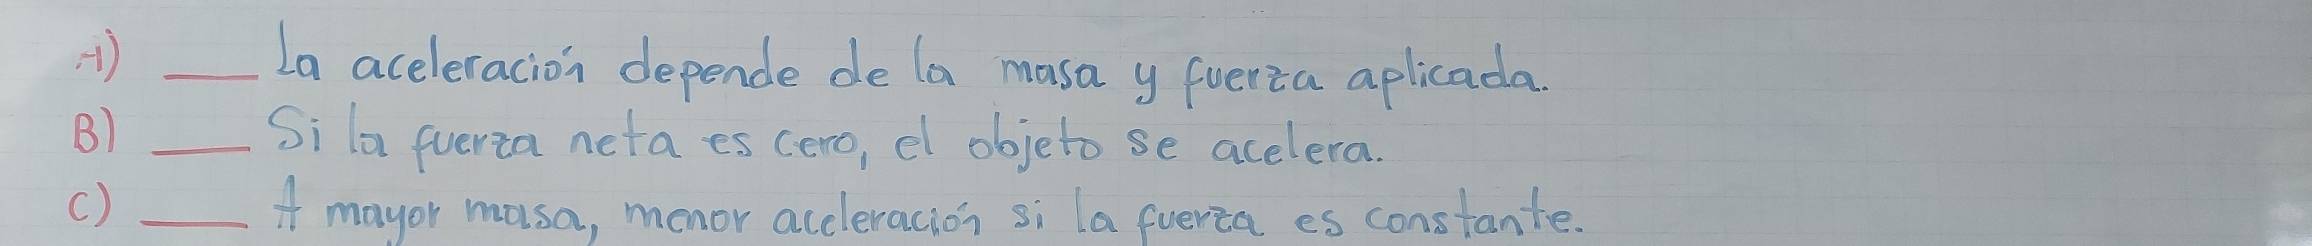 A) ____ La aceleración depende de la masa y fuerza aplicada.
B) ____ Si la fuerza neta es cero, el objeto se acelera.
C) ____ A mayor masa, menor aceleración si la fuerza es constante.